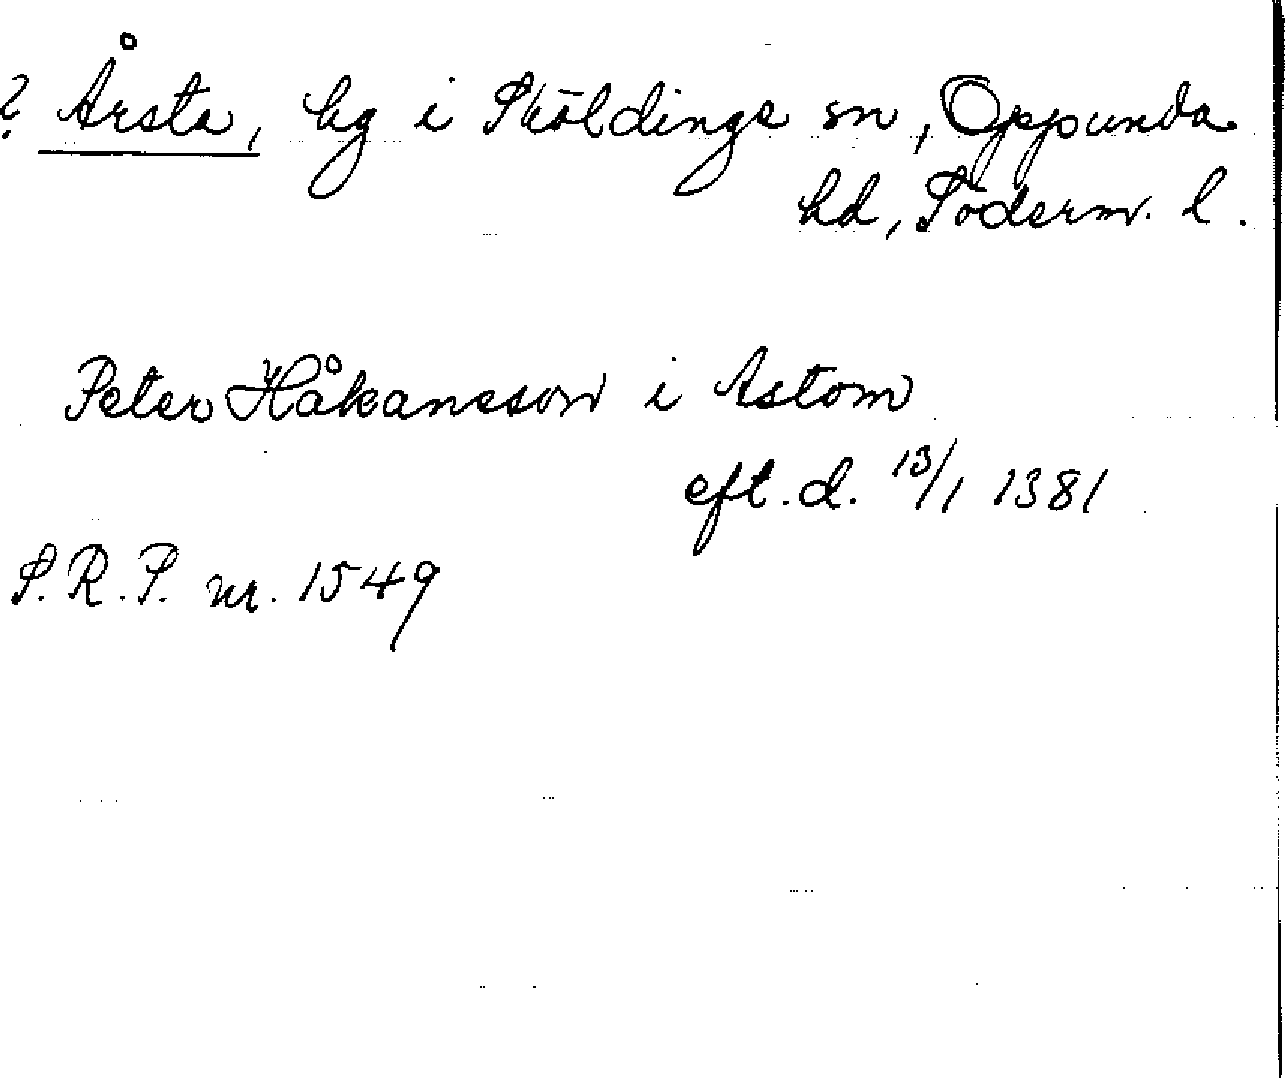 ? Årsta, hg i Sköldinge sn, Oppunda
hd, Söderm. l.
Peter Håkansson i Astom
eft. d. 13/1 1381
S.R.P. nr. 1549